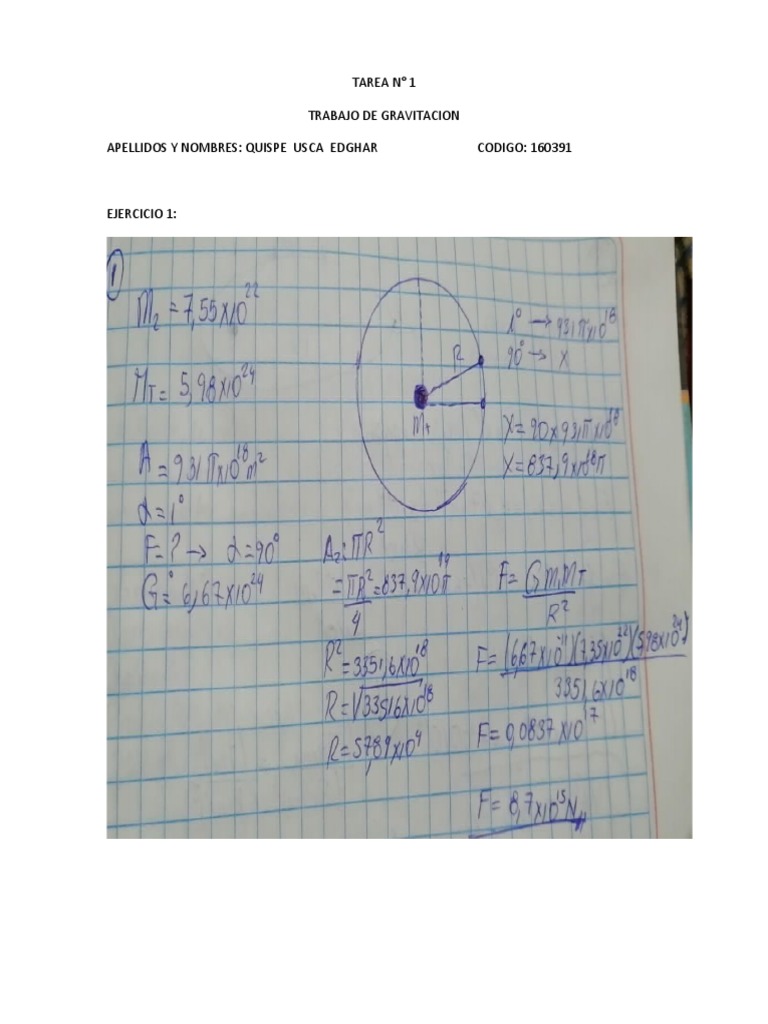 TAREA N° 1
TRABAJO DE GRAVITACION
APELLIDOS Y NOMBRES: QUISPE USCA EDGHAR CODIGO: 160391
EJERCICIO 1:
1
M₂ = 7,55x10²²
M_T = 5,98x10²⁴
A = 931πx10¹⁸m²
α = 1°
F = ? → α = 90°
G = 6,67x10²⁴
R
M_t
1° → 931πx10¹⁸
90° → X
X = 90x931πx10¹⁸
X = 837,9x10¹⁸π
A₂: πR²
= πR²/4 = 837,9x10¹⁹π
R² = 3351,6x10¹⁸
R = √33516x10¹⁸
R = 5789x10⁴
F = G m₁M_T / R²
F = (6,67x10⁻¹¹)(7,35x10²²)(5,98x10²⁴) / 3351,6x10¹⁸
F = 0,0837x10¹⁷
F = 8,7x10¹⁵N